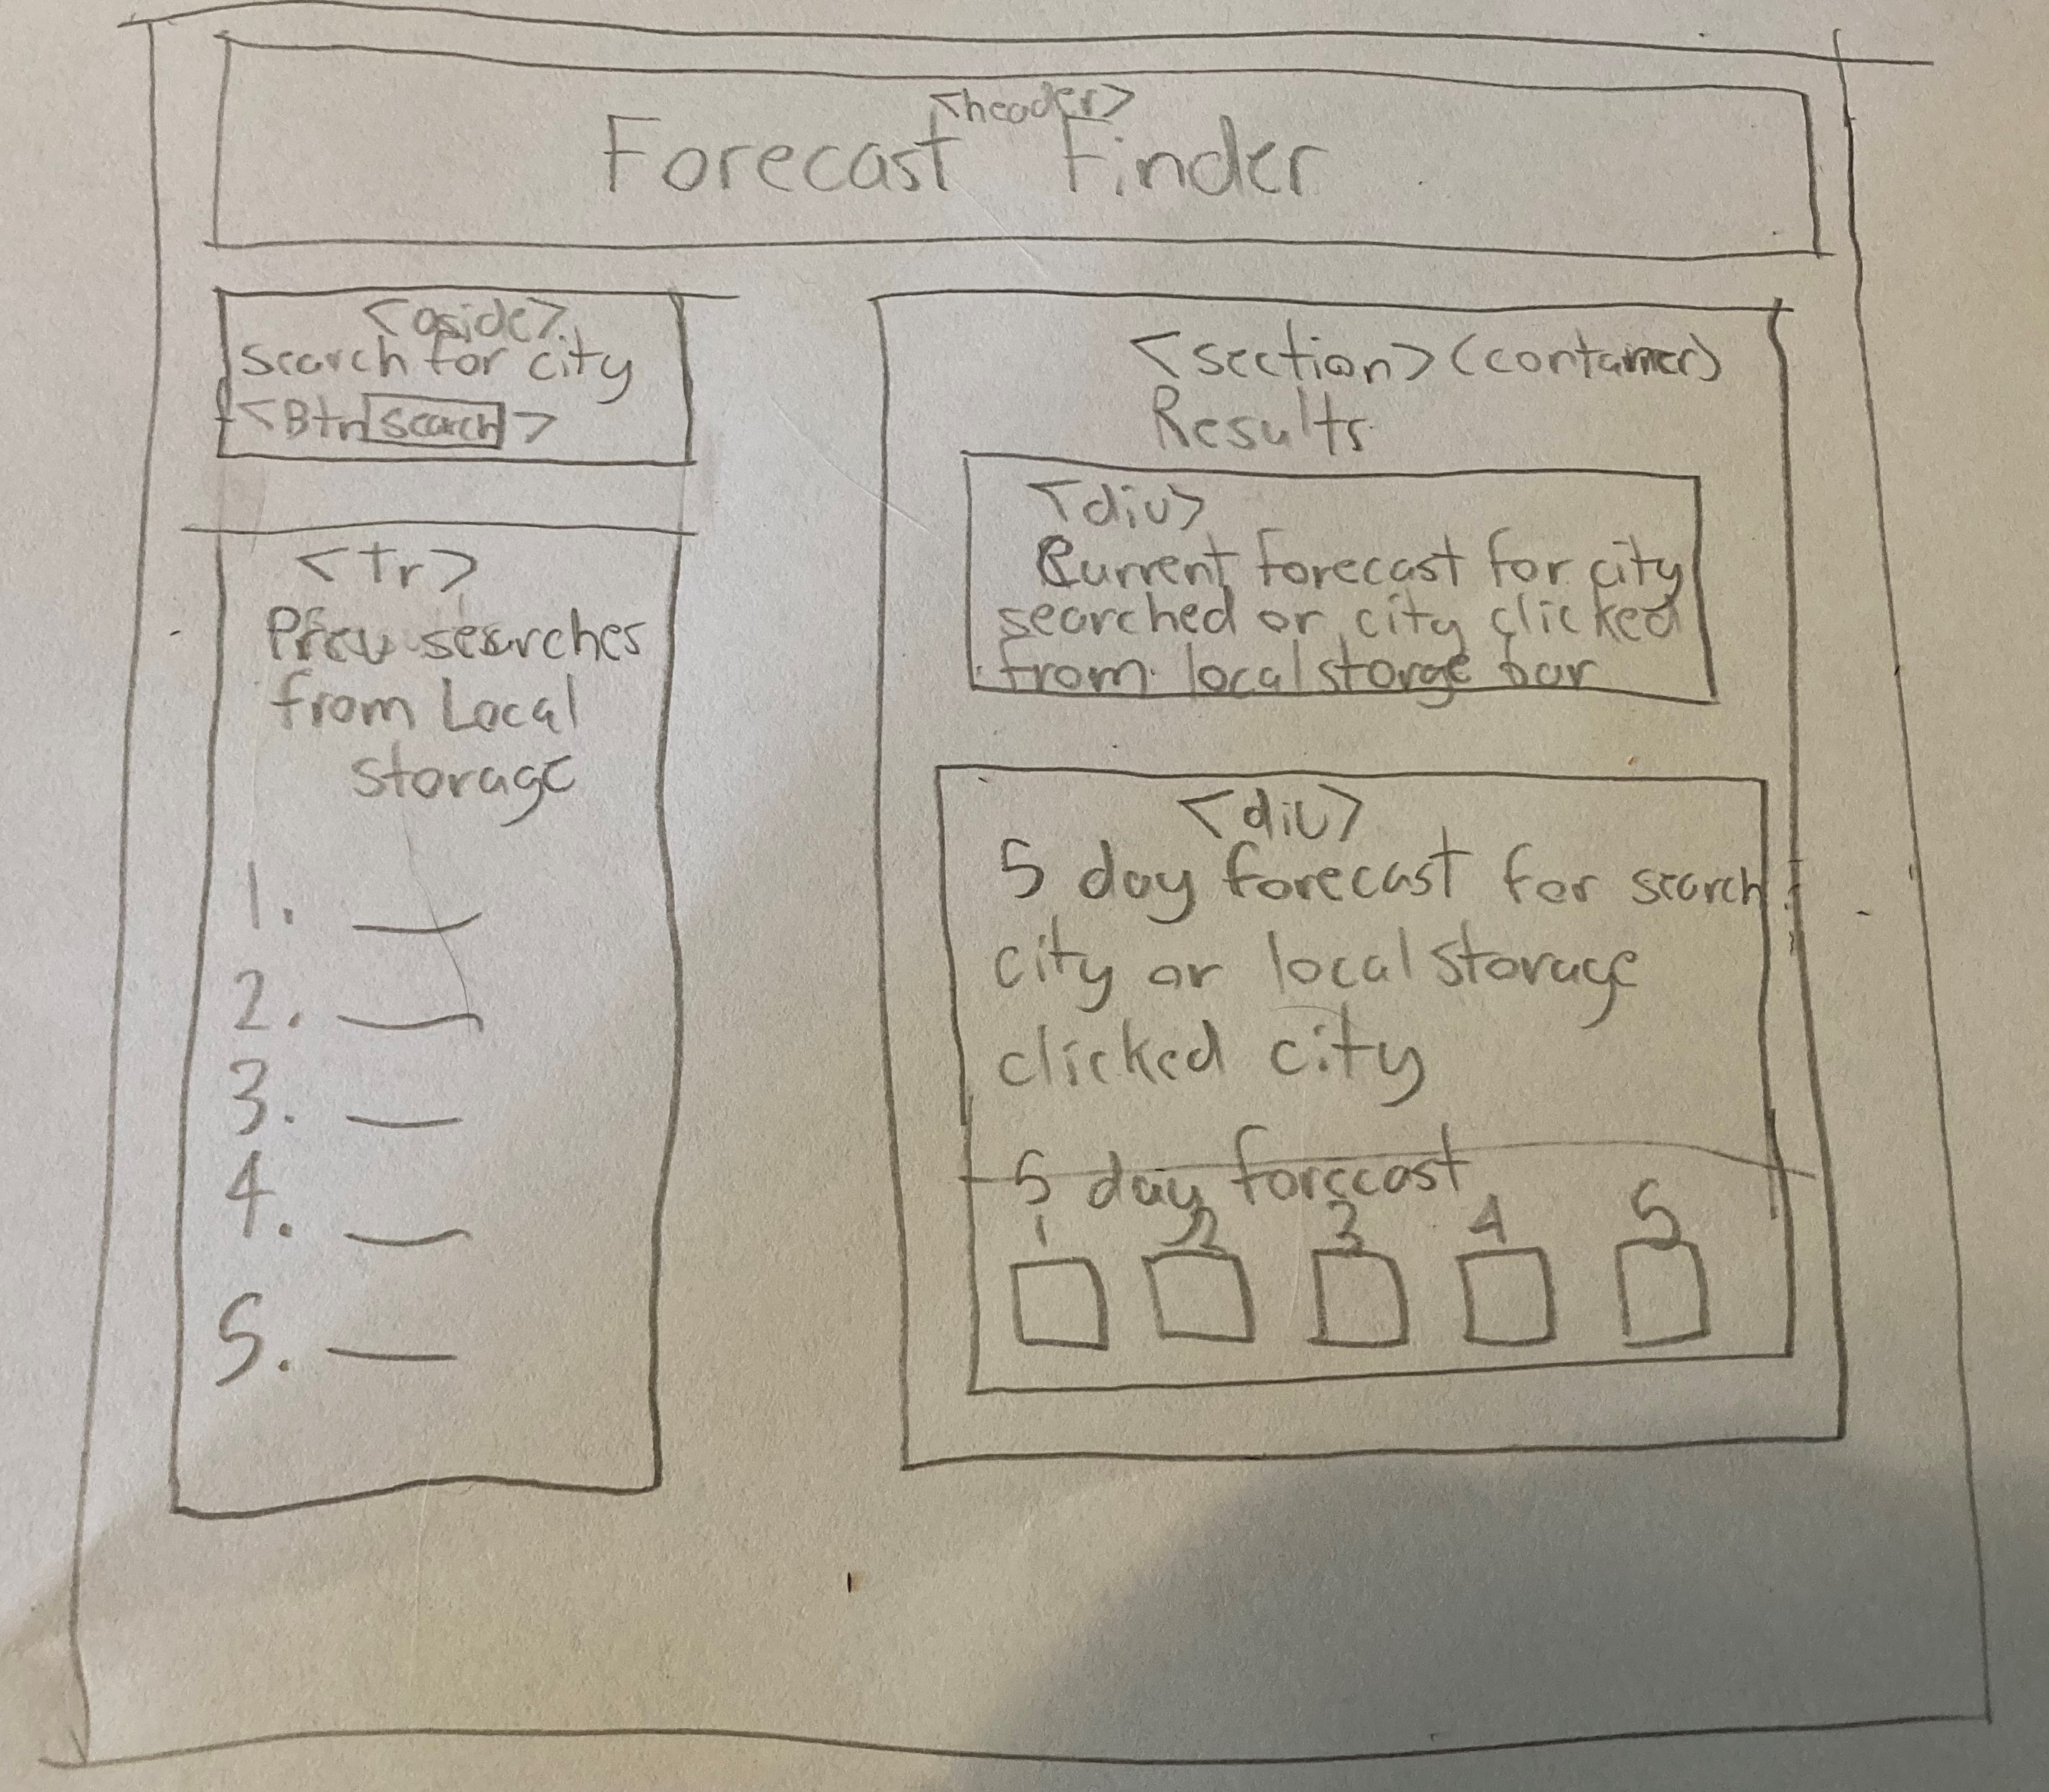 <header>
Forecast Finder
<aside>
search for city
<Btn search >
<Tr>
Prev searches
from Local
storage
1.
2.
3.
4.
5.
<section> (container)
Results
<div>
Current forecast for city
searched or city clicked
from local storge bar
<div>
5 day forecast for search
city or local storage
clicked city
5 day forecast
1 2 3 4 5